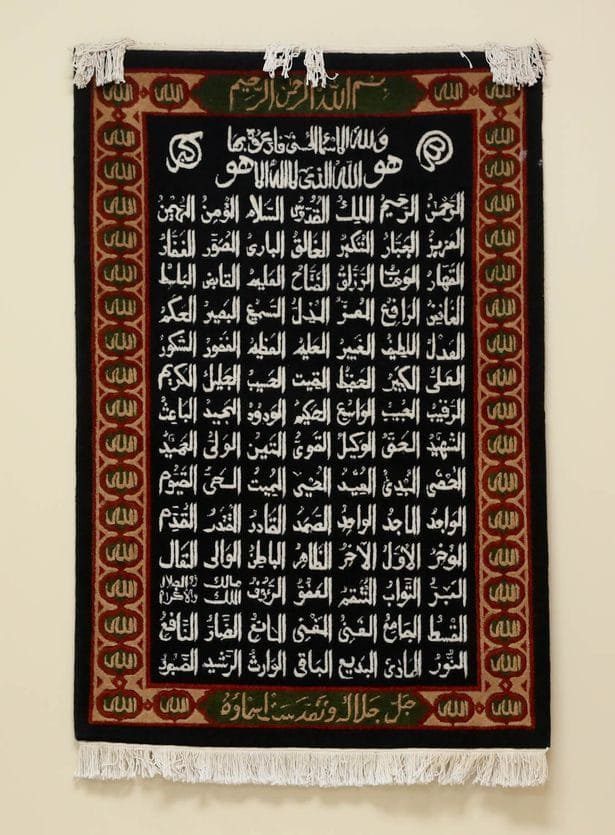 الله الله بسم الله الرحمن الرحيم الله الله
ولله الاسماء الحسنى فادعوه بها
هو الله الذى لا اله الا هو
الرحمن الرحيم الملك القدوس السلام المؤمن المهيمن
العزيز الجبار المتكبر الخالق البارئ المصور الغفار
القهار الوهاب الرزاق الفتاح العليم القابض الباسط
الخافض الرافع المعز المذل السميع البصير الحكم
العدل اللطيف الخبير الحليم العظيم الغفور الشكور
العلى الكبير الحفيظ المقيت الحسيب الجليل الكريم
الرقيب المجيب الواسع الحكيم الودود المجيد الباعث
الشهيد الحق الوكيل القوى المتين الولى الحميد
المحصى المبدئ المعيد المحيى المميت الحى القيوم
الواجد الماجد الواحد الصمد القادر المقتدر المقدم
المؤخر الاول الآخر الظاهر الباطن الوالى المتعال
البر التواب المنتقم العفو الرؤف مالك الملك ذو الجلال والاكرام
المقسط الجامع الغنى المغنى المانع الضار النافع
النور الهادى البديع الباقى الوارث الرشيد الصبور
الله الله جل جلاله وتقدست اسماؤه الله الله